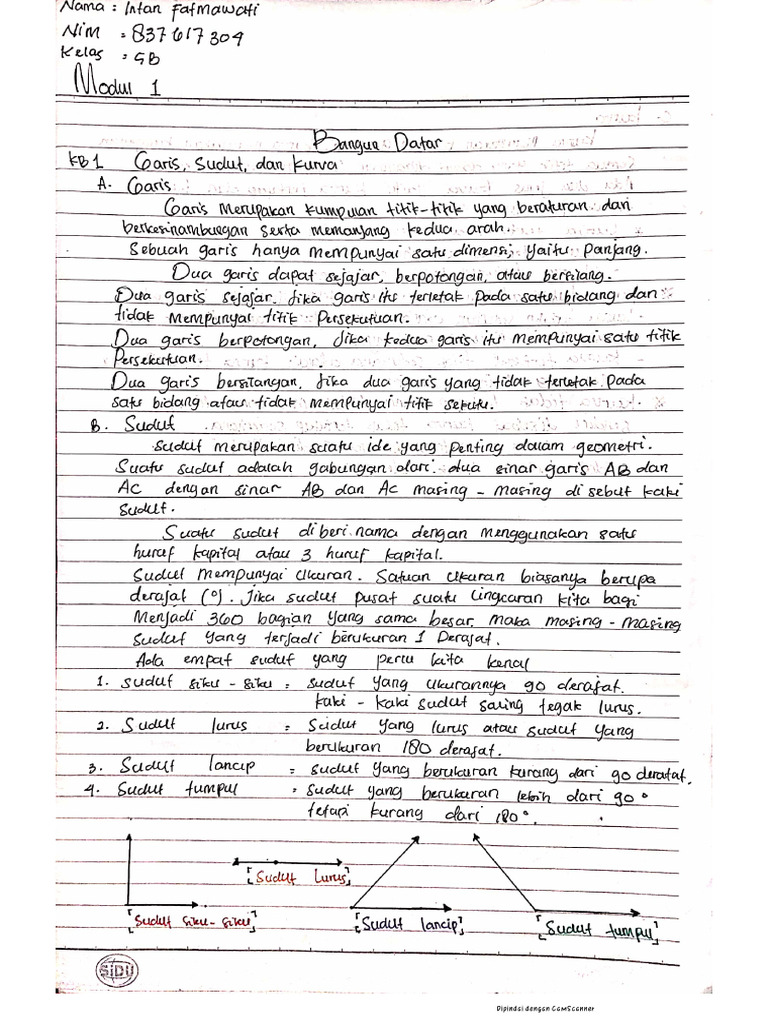 Nama : Intan Fatmawati
NIM : 837617304
Kelas : 5B
Modul 1
Bangun Datar
KB1 Garis, Sudut, dan Kurva
A. Garis
Garis merupakan kumpulan titik-titik yang beraturan dan
berkesinambungan serta memanjang kedua arah.
Sebuah garis hanya mempunyai satu dimensi, yaitu panjang.
Dua garis dapat sejajar, berpotongan, atau bersilang.
Dua garis sejajar. Jika garis itu terletak pada satu bidang dan
tidak mempunyai titik Persekutuan.
Dua garis berpotongan, Jika kedua garis itu mempunyai satu titik
Persekutuan.
Dua garis bersilangan, Jika dua garis yang tidak terletak pada
satu bidang atau tidak mempunyai titik sekutu.
B. Sudut
Sudut merupakan suatu ide yang penting dalam geometri.
Suatu sudut adalah gabungan dari dua sinar garis AB dan
AC dengan sinar AB dan AC masing-masing di sebut kaki
sudut.
Suatu sudut diberi nama dengan menggunakan satu
huruf kapital atau 3 huruf kapital.
Sudut mempunyai ukuran. Satuan ukuran biasanya berupa
derajat (°). Jika sudut pusat suatu lingkaran kita bagi
Menjadi 360 bagian yang sama besar, maka masing-masing
Sudut yang terjadi berukuran 1 Derajat.
Ada empat sudut yang perlu kita kenal
1. Sudut siku-siku = sudut yang ukurannya 90 derajat.
kaki-kaki sudut saling tegak lurus.
2. Sudut lurus = Sudut yang lurus atau sudut yang
berukuran 180 derajat.
3. Sudut lancip = sudut yang berukuran kurang dari 90 derajat.
4. Sudut tumpul = sudut yang berukuran lebih dari 90°
tetapi kurang dari 180°.
[Sudut Lurus]
[Sudut siku-siku] [Sudut lancip] [Sudut tumpul]
SiDU
Dipindai dengan CamScanner